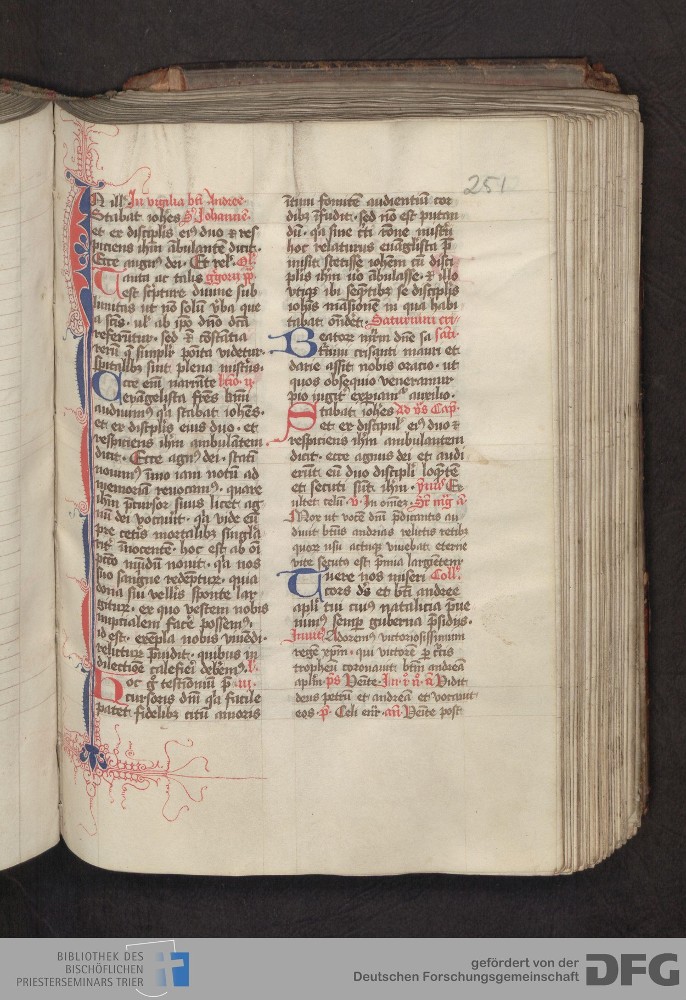 251
IN ill' In vigilia bti Andree·
Stabat iohes S' Johanne·
et ex discplis eiꝯ duo ⁊ res
piciens ihm ābulantē dicit·
Ecce agnꝯ dei· Et rel'· Ol'
Tanta ac talis g̊gorii pp̄
est scpture diuine sub
limitas ut nō solū v̄ba que
a scīs· ul' ab ip̄o dn̄o dcā
referūtur· sed ⁊ cōstātia
rerū q̄ simplr̄ pōita videtur·
spūalibꝫ sint plena misterijs·
Ecce em̄ narrāte lctio· ij·
evāngelista frēs km̄i
audiuimꝯ qꝛ stabat iohēs·
et ex discplis eius duo· et
respiciens ihm̄ ambulātem
dicit· Ecce agnꝯ dei· statī
nouimꝯ īmo iam notū ad
memoriam reuocamꝯ· quare
ihm̄ p̄cursor suus licet ag
nū dei vocauit· qꝛ vide eū
pre ceteris mortalibꝫ singla
rit̄ īnocentē· hoc est ab oī
pctō mūdū nouit· qꝛ nos
suo sangne redēpturꝯ· quia
dona sui vellis sponte lar
giturꝯ· ex quo vestem nobis
nuptialem facē possemꝯ·
id est· exēpla nobis viuēdi·
relicturꝯ p̄uidit· quibus in
dilectione calefieri debemꝯ· v̄·
Hoc g̊ testioniū p̄ iij·
cursoris dn̄i qꝛ facile
patet· fidelibꝫ citū amoris
ītūm fomitē audientiū cor
dibꝫ īfudit· sed nō est putan
dū· qꝛ sine cti rōne mistrii
hoc relaturus euāglista p̄
misit· stetisse iohēm cū disci
plis ihm̄ uo ābulasse· ⁊ illo
vtiqꝫ ibi seqn̄tibꝫ se discplis
iohīs māsionē in qua habi
tabat· oñdet· Saturnini cri
Beatorꝫ mr̄m dn̄e sa sāti·
turnini crisanti mauri et
darie assit nobis oratio· ut
quos obsequio veneramur
pio iugit̄ expiamꝰ auxilio·
Stabat iohes Ad vs̄ Cap̄·
et ex discipul' eiꝯ duo ⁊
respiciens ihm̄ ambulantem
dicit· ecce agnus dei et audi
erūt eū duo discipli loqn̄tē
et secuti sūt ihm̄· ymꝰ Ex
ultet celū· v̄· In omēꝫ· Sr̄ mḡ ā
Mox ut vocē dn̄i p̄dicantis au
diuit btūs andrias relictis retibꝫ
quorꝫ usu actuqꝫ viuebat eterne
vite secutus est p̄mia largientem
Tuere nos miseri Coll'·
cors ds̄ et bti andree
apli tui cuiꝯ natalicia p̄ue
nimꝯ semꝑ guberna p̄sidijs·
Jnuitꝯ Adoremꝯ victoriosissimum
regē xp̄m· qui victorē ꝑ crcis
tropheū coronauit btm̄ andreā
aplm̄· ps̄ Venite· Jn· i· n̄· ā Vidit
deus petrū et andreā et vocauit
eos· p̄· Celi enr̄· añ· Venite post
BIBLIOTHEK DES
BISCHÖFLICHEN
PRIESTERSEMINARS TRIER
gefördert von der
Deutschen Forschungsgemeinschaft
DFG